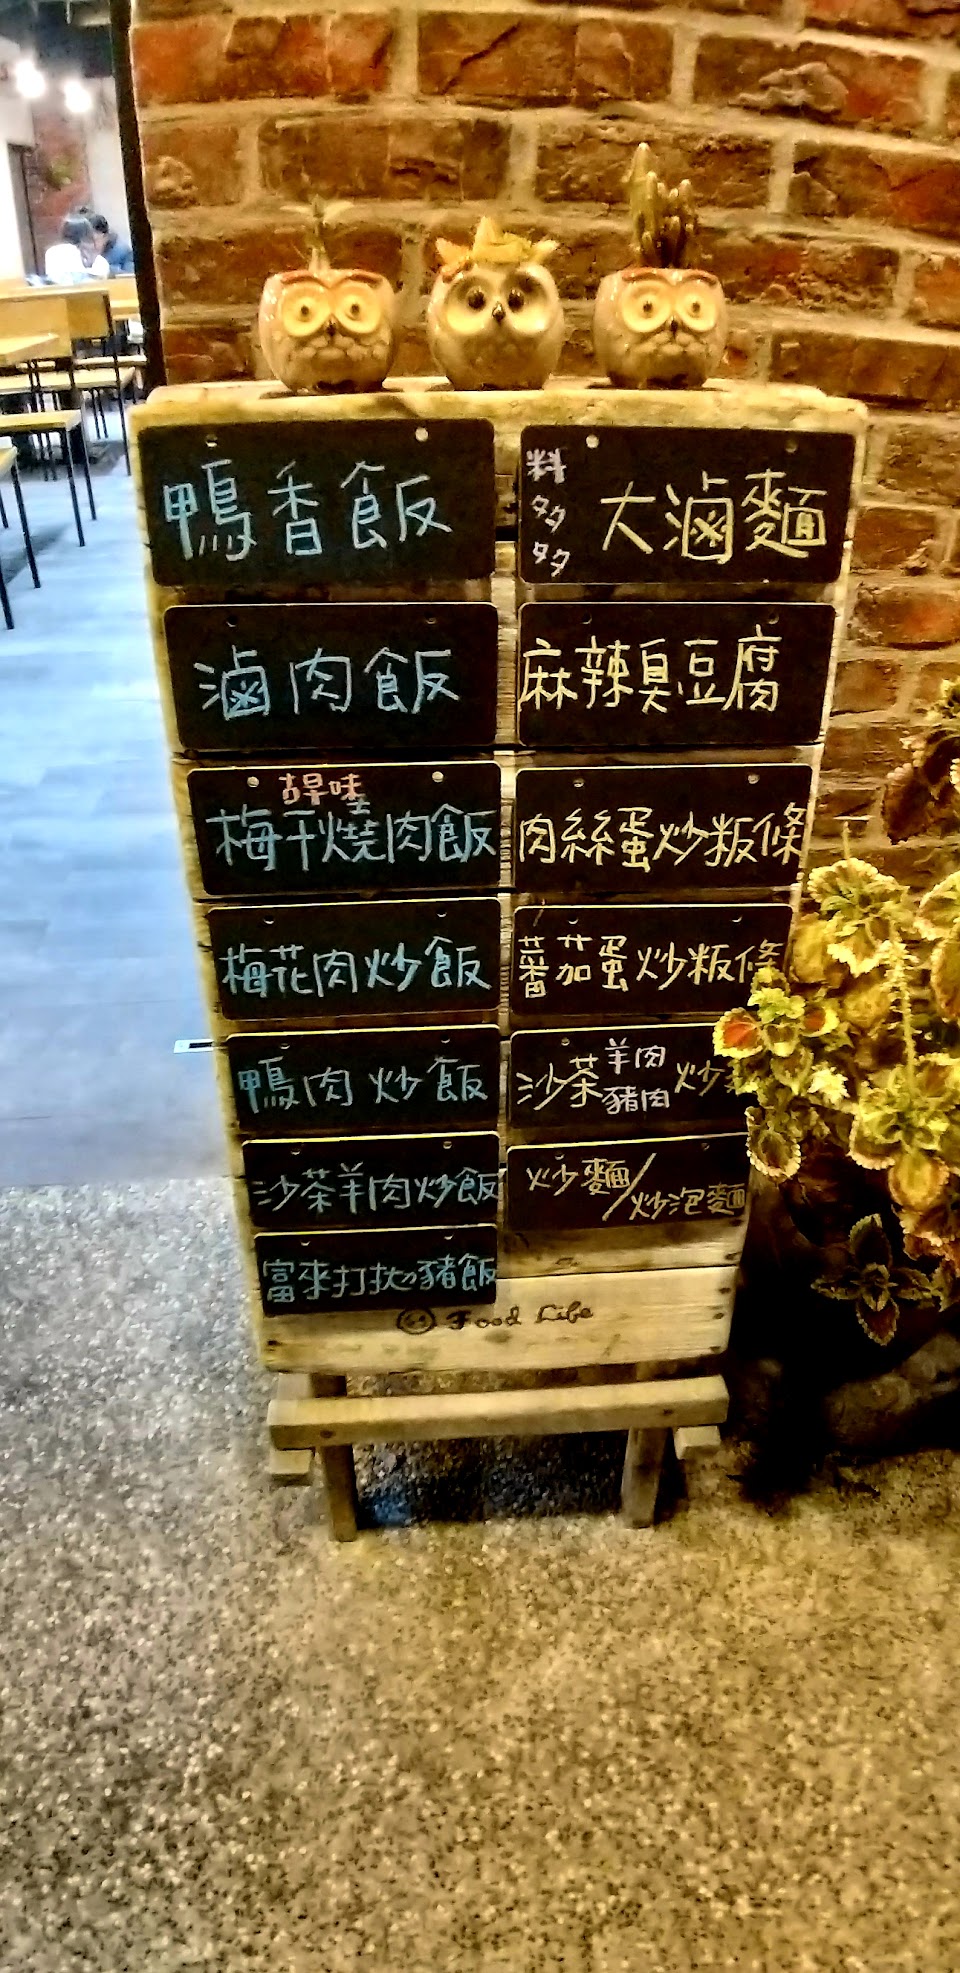 鴨香飯
滷肉飯
古早味
梅干燒肉飯
梅花肉炒飯
鴨肉炒飯
沙茶羊肉炒飯
富來打拋豬飯
料多多
大滷麵
麻辣臭豆腐
肉絲蛋炒粄條
蕃茄蛋炒粄條
沙茶羊肉豬肉炒
炒麵/炒泡麵
Food Life